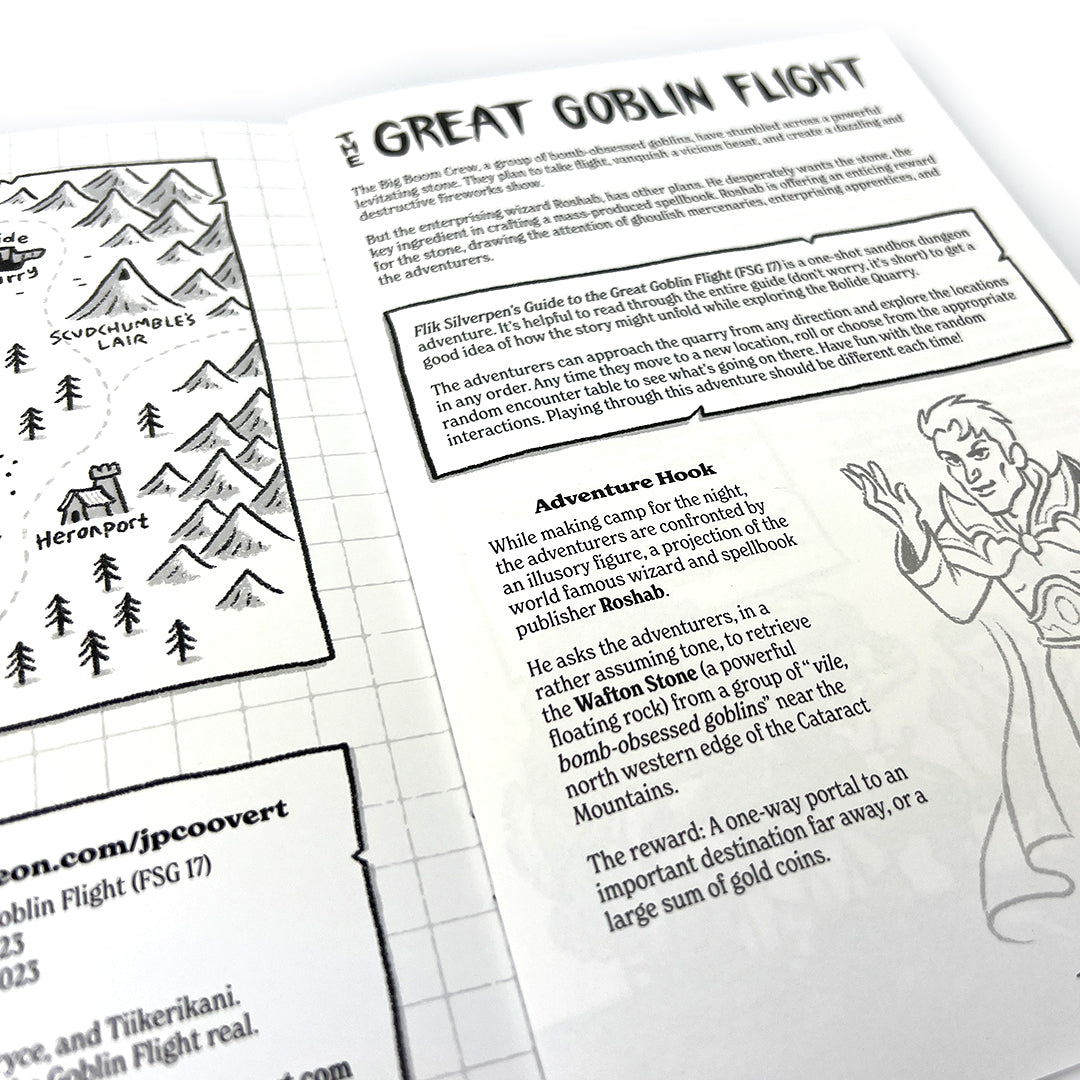 ide
rry
SCUDCHUMBLE'S
LAIR
Heronport
eon.com/jpcoovert
oblin Flight (FSG 17)
23
023
ryce, and Tiikerikani.
Goblin Flight real.
t.com
THE GREAT GOBLIN FLIGHT
The Big Boom Crew, a group of bomb-obsessed goblins, have stumbled across a powerful
levitating stone. They plan to take flight, vanquish a vicious beast, and create a dazzling and
destructive fireworks show.
But the enterprising wizard Roshab, has other plans. He desperately wants the stone, the
key ingredient in crafting a mass-produced spellbook. Roshab is offering an enticing reward
for the stone, drawing the attention of ghoulish mercenaries, enterprising apprentices, and
the adventurers.
Flik Silverpen's Guide to the Great Goblin Flight (FSG 17) is a one-shot sandbox dungeon
adventure. It's helpful to read through the entire guide (don't worry, it's short) to get a
good idea of how the story might unfold while exploring the Bolide Quarry.
The adventurers can approach the quarry from any direction and explore the locations
in any order. Any time they move to a new location, roll or choose from the appropriate
random encounter table to see what's going on there. Have fun with the random
interactions. Playing through this adventure should be different each time!
Adventure Hook
While making camp for the night,
the adventurers are confronted by
an illusory figure, a projection of the
world famous wizard and spellbook
publisher Roshab.
He asks the adventurers, in a
rather assuming tone, to retrieve
the Wafton Stone (a powerful
floating rock) from a group of "vile,
bomb-obsessed goblins" near the
north western edge of the Cataract
Mountains.
The reward: A one-way portal to an
important destination far away, or a
large sum of gold coins.